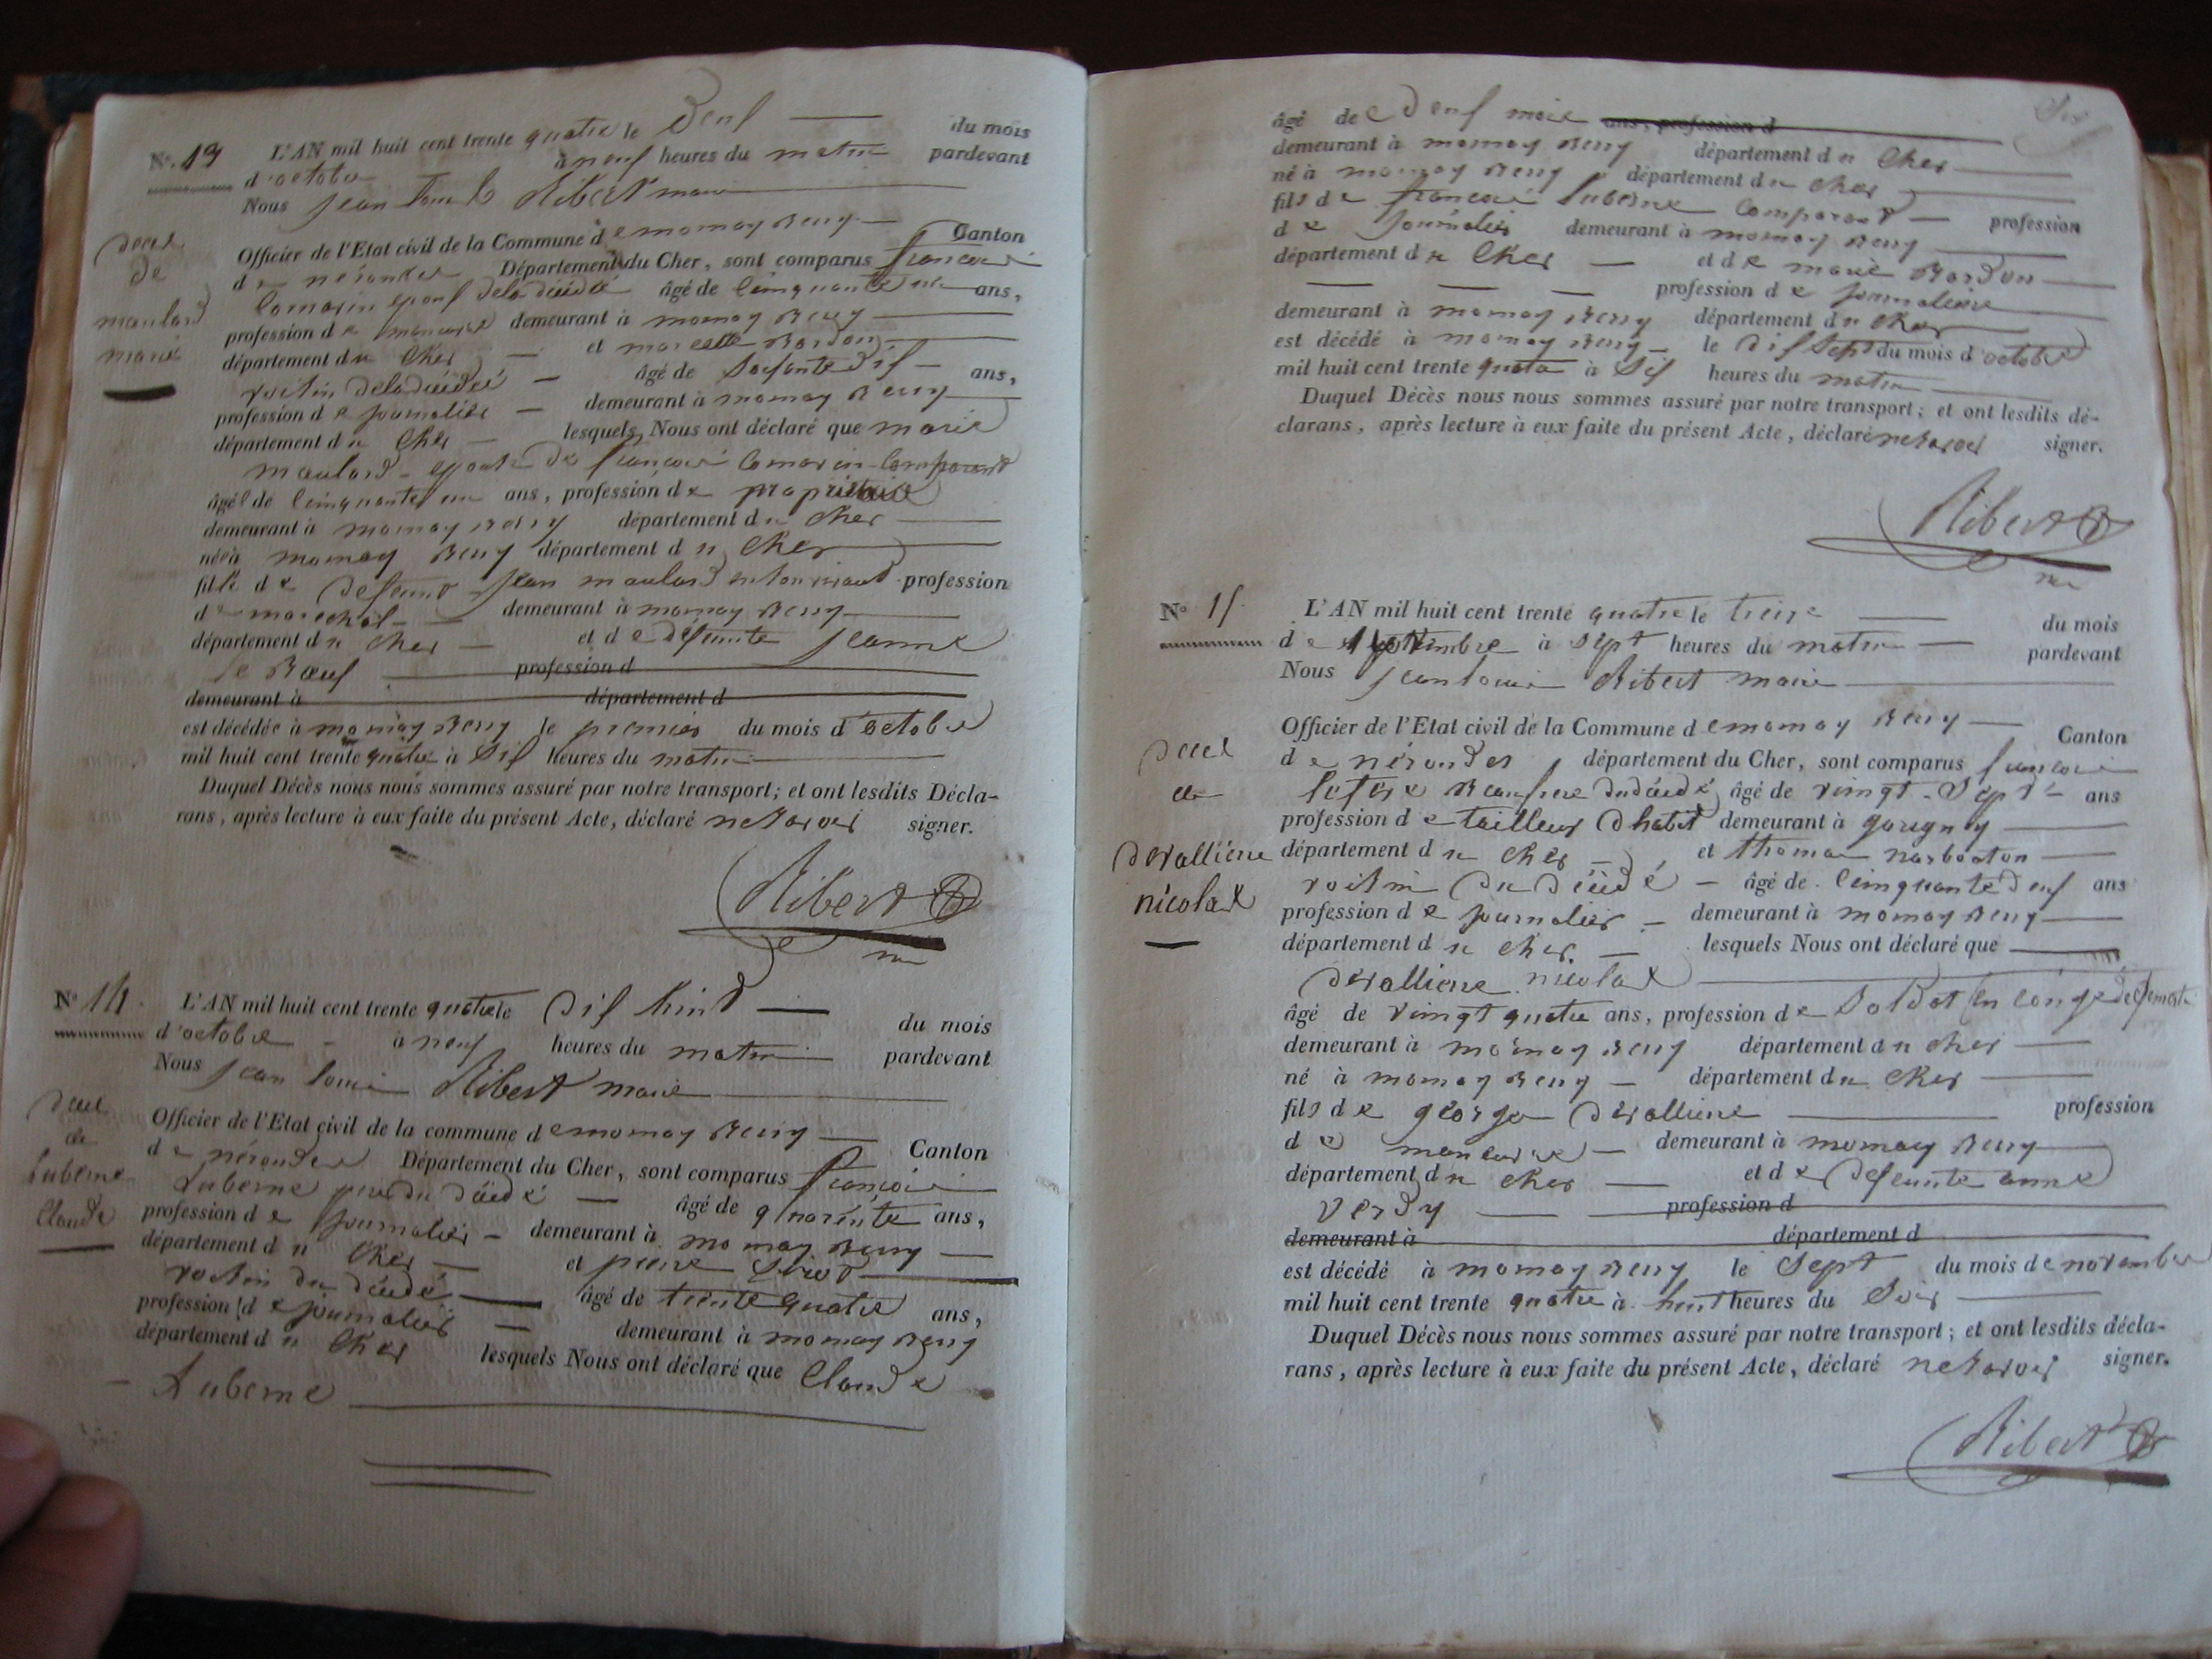 N°. 13 L'AN mil huit cent trente quatre le Deux du mois
d'octobre à neuf heures du matin pardevant
Nous jean Louis Ribert maire
Officier de l'Etat civil de la Commune de mornay Berry Canton
de nérondes Département du Cher, sont comparus françois
lomorin epoux de la décédé âgé de Cinquante un ans,
profession de manoeuvre demeurant à mornay Berry
département du Cher et marcelle Bardon
voisin de la décédé âgé de Soixante Dix ans,
profession de journalier demeurant à mornay Berry
département du Cher lesquels Nous ont déclaré que marie
maulard epouse de françois lomorin Comparant
âgée de Cinquante un ans, profession de propriétaire
demeurant à mornay Berry département du Cher
née à mornay Berry département du Cher
fille de defunt jean maulard profession
de marechal demeurant à mornay Berry
département du Cher et de défunte jeanne
le Bœuf profession d
demeurant à département d
est décédée à mornay Berry le premier du mois d'octobre
mil huit cent trente quatre à Six heures du matin
Duquel Décès nous nous sommes assuré par notre transport; et ont lesdits Décla-
rans, après lecture à eux faite du présent Acte, déclaré ne savoir signer.
Ribert
deces
de
maulard
marie
N° 14. L'AN mil huit cent trente quatre le Dix huit du mois
d'octobre à neuf heures du matin pardevant
Nous jean Louis Ribert maire
Officier de l'Etat civil de la commune de mornay Berry Canton
de nérondes Département du Cher, sont comparus françois
Luberne pere du décédé âgé de quarente ans,
profession de journalier demeurant à mornay Berry
département du Cher et pierre
voisin du décédé âgé de trente quatre ans,
profession de journalier demeurant à mornay Berry
département du Cher lesquels Nous ont déclaré que Claude
Luberne
deces
de
Luberne
Claude
âgé de Deux mois ans, profession d
demeurant à mornay Berry département du Cher
né à mornay Berry département du Cher
fils de françois Luberne Comparant profession
de journalier demeurant à mornay Berry
département du Cher et de marie Bardon
profession de journaliere
demeurant à mornay Berry département du Cher
est décédé à mornay Berry le Dix Sept du mois d'octobre
mil huit cent trente quatre à Six heures du matin
Duquel Décès nous nous sommes assuré par notre transport; et ont lesdits dé-
clarans, après lecture à eux faite du présent Acte, déclaré ne savoir signer.
Ribert
N° 15 L'AN mil huit cent trente quatre le treize du mois
de novembre à Sept heures du matin pardevant
Nous jean louis Ribert maire
Officier de l'Etat civil de la Commune de mornay Berry Canton
de nérondes département du Cher, sont comparus françois
lefort Beaufrere du décédé âgé de vingt Sept ans
profession de tailleur d'habit demeurant à garigny
département du Cher et thomas narboton
voisin du décédé âgé de Cinquante Deux ans
profession de journalier demeurant à mornay Berry
département du Cher. lesquels Nous ont déclaré que
devalliere nicolas
âgé de vingt quatre ans, profession de Soldat en Congé
demeurant à mornay Berry département du Cher
né à mornay Berry département du Cher
fils de george devalliere profession
de manoeuvre demeurant à mornay Berry
département du Cher et de Defunte anne
verdy profession d
demeurant à département d
est décédé à mornay Berry le Sept du mois de novembre
mil huit cent trente quatre à huit heures du Soir
Duquel Décès nous nous sommes assuré par notre transport; et ont lesdits décla-
rans, après lecture à eux faite du présent Acte, déclaré ne savoir signer.
Ribert
deces
de
devalliere
nicolas